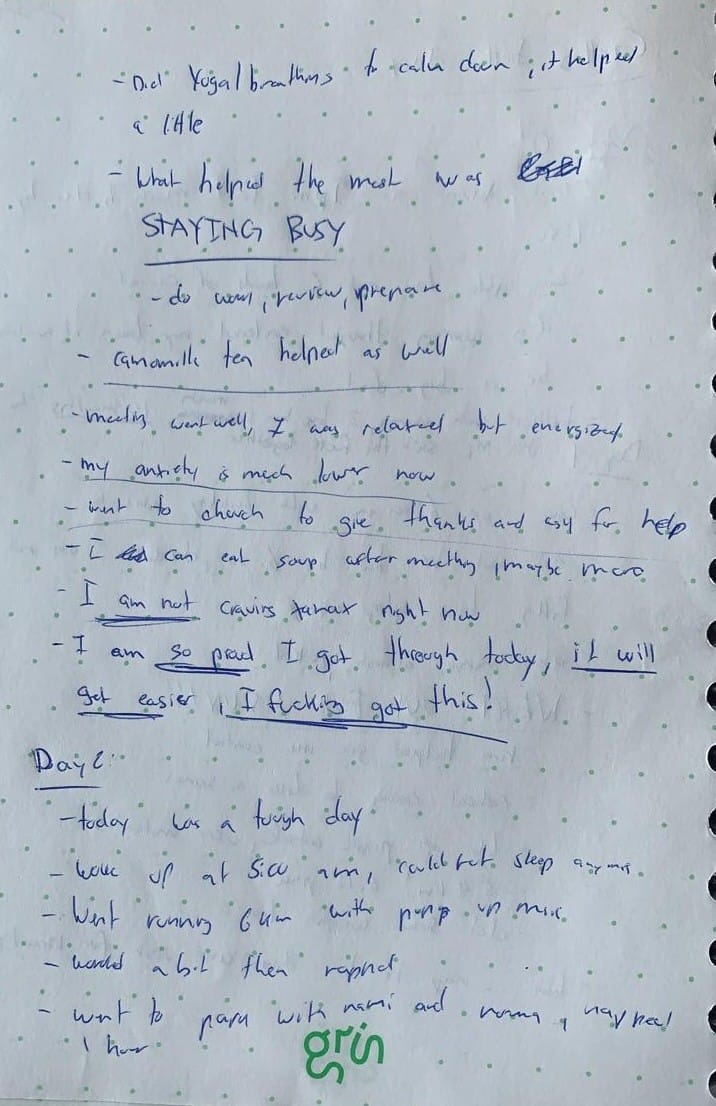 - Did Yoga/breathing to calm down, it helped
a little
- What helped the most was
STAYING BUSY
- do work, review, prepare
- camomille tea helped as well
- meeting went well, I was relaxed but energized
- my anxiety is much lower now
- went to church to give thanks and ask for help
- I can eat soup after meeting, maybe more
- I am not craving right now
- I am so proud I got through today, it will
get easier, I fucking got this!
Day 2:
- today was a tough day
- woke up at 5:00 am, could not sleep anymore
- Went running 6 km with pump up music
- worked a bit then napped
- went to park with and, napped
1 hour
gris